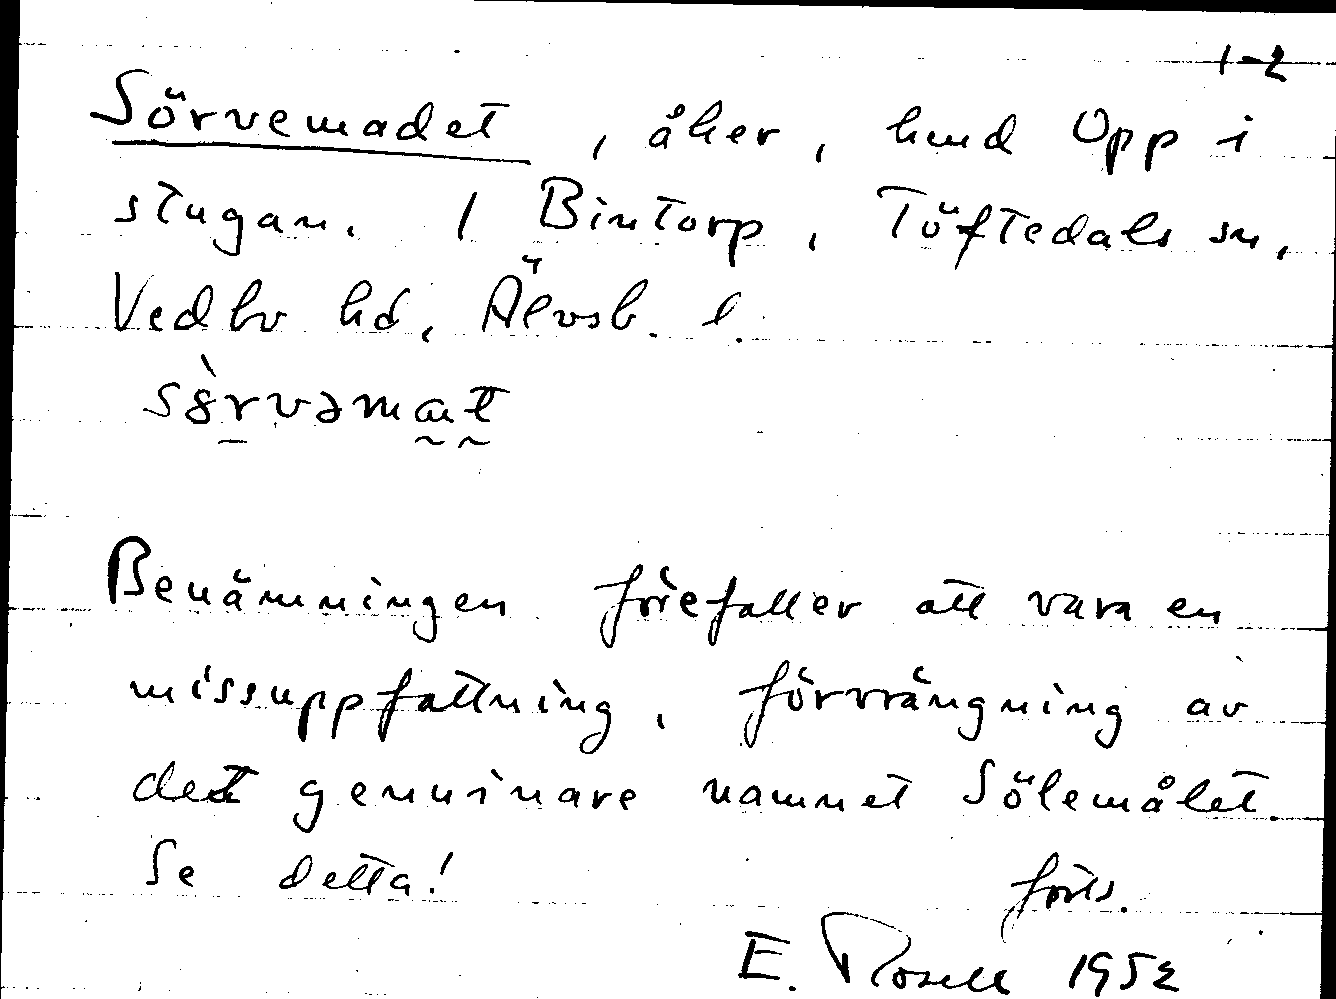 1-2
Sörvemadet, åker, hmd Opp i
stugan. / Bintorp, Töftedals sn,
Vedbo hd, Älvsb. l.
Benämningen förefaller att vara en
missuppfattning, förvrängning av
det genuinare namnet Sölemålet.
Se detta!
forts.
E. Rosell 1952